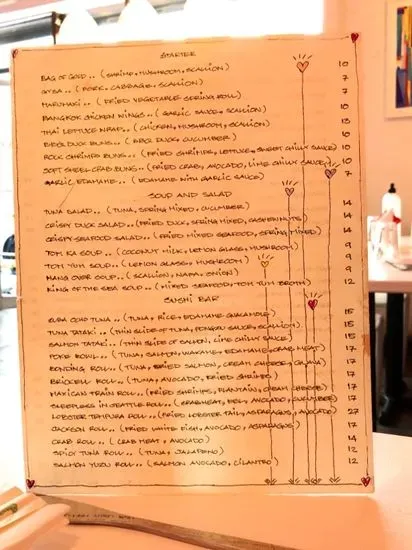 STARTER
BAG OF GOLD.. (SHRIMP, MUSHROOM, SCALLION) 10
GYOZA.. (PORK, CABBAGE, SCALLION) 7
HARUMAKI.. (FRIED VEGETABLE SPRING ROLL) 7
BANGKOK CHICKEN WINGS.. (GARLIC SAUCE, SCALLION) 10
THAI LETTUCE WRAP.. (CHICKEN, MUSHROOM, SCALLION) 13
BBQ DUCK BUNS.. (BBQ DUCK, CUCUMBER) 10
ROCK SHRIMPS BUNS.. (FRIED SHRIMPS, LETTUCE, SWEET CHILLY SAUCE) 10
SOFT SHELL CRAB BUNS.. (FRIED CRAB, AVOCADO, LIME CHILLY SAUCE) 10
GARLIC EDAMAME.. (EDAMAME WITH GARLIC SAUCE) 7
SOUP AND SALAD
TUNA SALAD.. (TUNA, SPRING MIXED, CUCUMBER) 14
CRISPY DUCK SALAD.. (FRIED DUCK, SPRING MIXED, CASHEWNUTS) 14
CRISPY SEAFOOD SALAD.. (FRIED MIXED SEAFOOD, SPRING MIXED) 14
TOM KA SOUP.. (COCONUT MILK, LEMON GLASS, MUSHROOM) 9
TOM YUM SOUP.. (LEMON GLASS, MUSHROOM) 9
MANG OVER SOUP.. (SCALLION, NAPA, ONION) 9
KING OF THE SEA SOUP.. (MIXED SEAFOOD, TOM YUM BROTH) 12
SUSHI BAR
TUNA, RICE, EDAMAME GUACAMOLE) 15
TUNA TATAKI.. (THIN SLIDE OF TUNA, PONZU SAUCE, SCALLION) 15
SALMON TATAKI.. (THIN SLIDE OF SALMON, LIME CHILLY SAUCE) 15
POKE BOWL.. (TUNA, SALMON, WAKAME, EDAMAME, CRAB MEAT) 17
BONDING ROLL.. (TUNA, FRIED SALMON, CREAM CHEESE, 17
ROLL.. (TUNA, AVOCADO, FRIED SHRIMP) 17
MAXICAN TRAIN ROLL.. (FRIED SHRIMPS, PLANTAIN, CREAM CHEESE) 17
SLEEPLESS IN SEATTLE ROLL.. (CRABMEAT, EEL, AVOCADO, CUCUMBER) 17
LOBSTER TEMPURA ROLL.. (FRIED LOBSTER TAIL, ASPARAGUS, AVOCADO) 27
JACKSON ROLL.. (FRIED WHITE FISH, AVOCADO, ASPARAGUS) 17
CRAB ROLL.. (CRAB MEAT, AVOCADO) 14
SPICY TUNA ROLL.. (TUNA, JALAPENO) 12
SALMON YUZU ROLL.. (SALMON AVOCADO, CILANTRO) 12